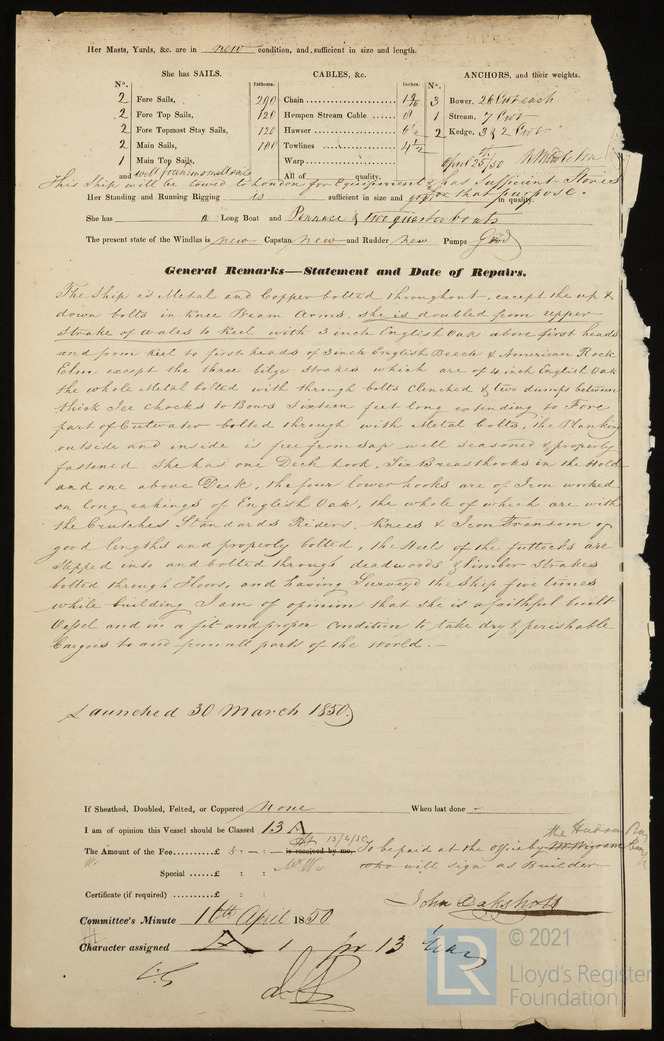 Her Masts, Yards, &c. are in new condition, and sufficient in size and length.
She has SAILS. CABLES, &c. ANCHORS, and their weights.
No. Fathoms. Inches. No.
2 Fore Sails, 290 Chain 1 9/16 3 Bower, 26 Cwt each
2 Fore Top Sails, 120 Hempen Stream Cable 8 1 Stream, 7 Cwt
2 Fore Topmast Stay Sails, 120 Hawser 6½ 2 Kedge, 3 & 2 Cwt
2 Main Sails, 100 Towlines 4½
1 Main Top Sails, Warp April 25/50
and well found in small sails All of quality.
This Ship will be towed to London for Equipment & has Sufficient Stores for that purpose.
Her Standing and Running Rigging is sufficient in size and good in quality.
She has a Long Boat and Pennace & two quarter boats
The present state of the Windlas is new Capstan new and Rudder new Pumps Good
General Remarks—Statement and Date of Repairs.
The Ship is Metal and Copper bolted throughout except the up &
down bolts in Knee Beam Arms, she is doubled from upper
Strake of Wales to Keel with 3 inch English Oak above first heads
and from Keel to first heads of 3 inch English Beech & American Rock
Elm except the three bilge strakes which are of 4 inch English Oak
the whole Metal bolted with through bolts Clenched & two dumps between
thick Ice chocks to Bows Sixteen feet long extending to Fore
part of Cutwater bolted through with Metal bolts, the Planking
outside and inside is free from Sap well seasoned & properly
fastened. She has one Deck hook, Six Breasthooks in the Hold
and one above Deck, the four lower hooks are of Iron worked
on long eakings of English Oak, the whole of which are with
the Crutches Standards Riders, Knees & Iron Transom of
good lengths and properly bolted, the Heels of the futtocks are
Stepped into and bolted through deadwoods & timber Strakes
bolted through Floors, and having Surveyd the Ship five times
while building I am of opinion that she is a faithful built
Vessel and in a fit and proper Condition to take dry & perishable
Cargoes to and from all parts of the World. —
Launched 30 March 1850.
If Sheathed, Doubled, Felted, or Coppered None When last done -
the Hudson Bay
I am of opinion this Vessel should be Classed 13 A
15/4/50
The Amount of the Fee £ 5 : - : - is received by me, To be paid at the office by Mr Wigram
Special £ : : who will sign as Builder
Certificate (if required) £ : : John Oakshott
Committee's Minute 16th April 1850
Character assigned A 1 for 13 Years
© 2021
LR Lloyd's Register
Foundation